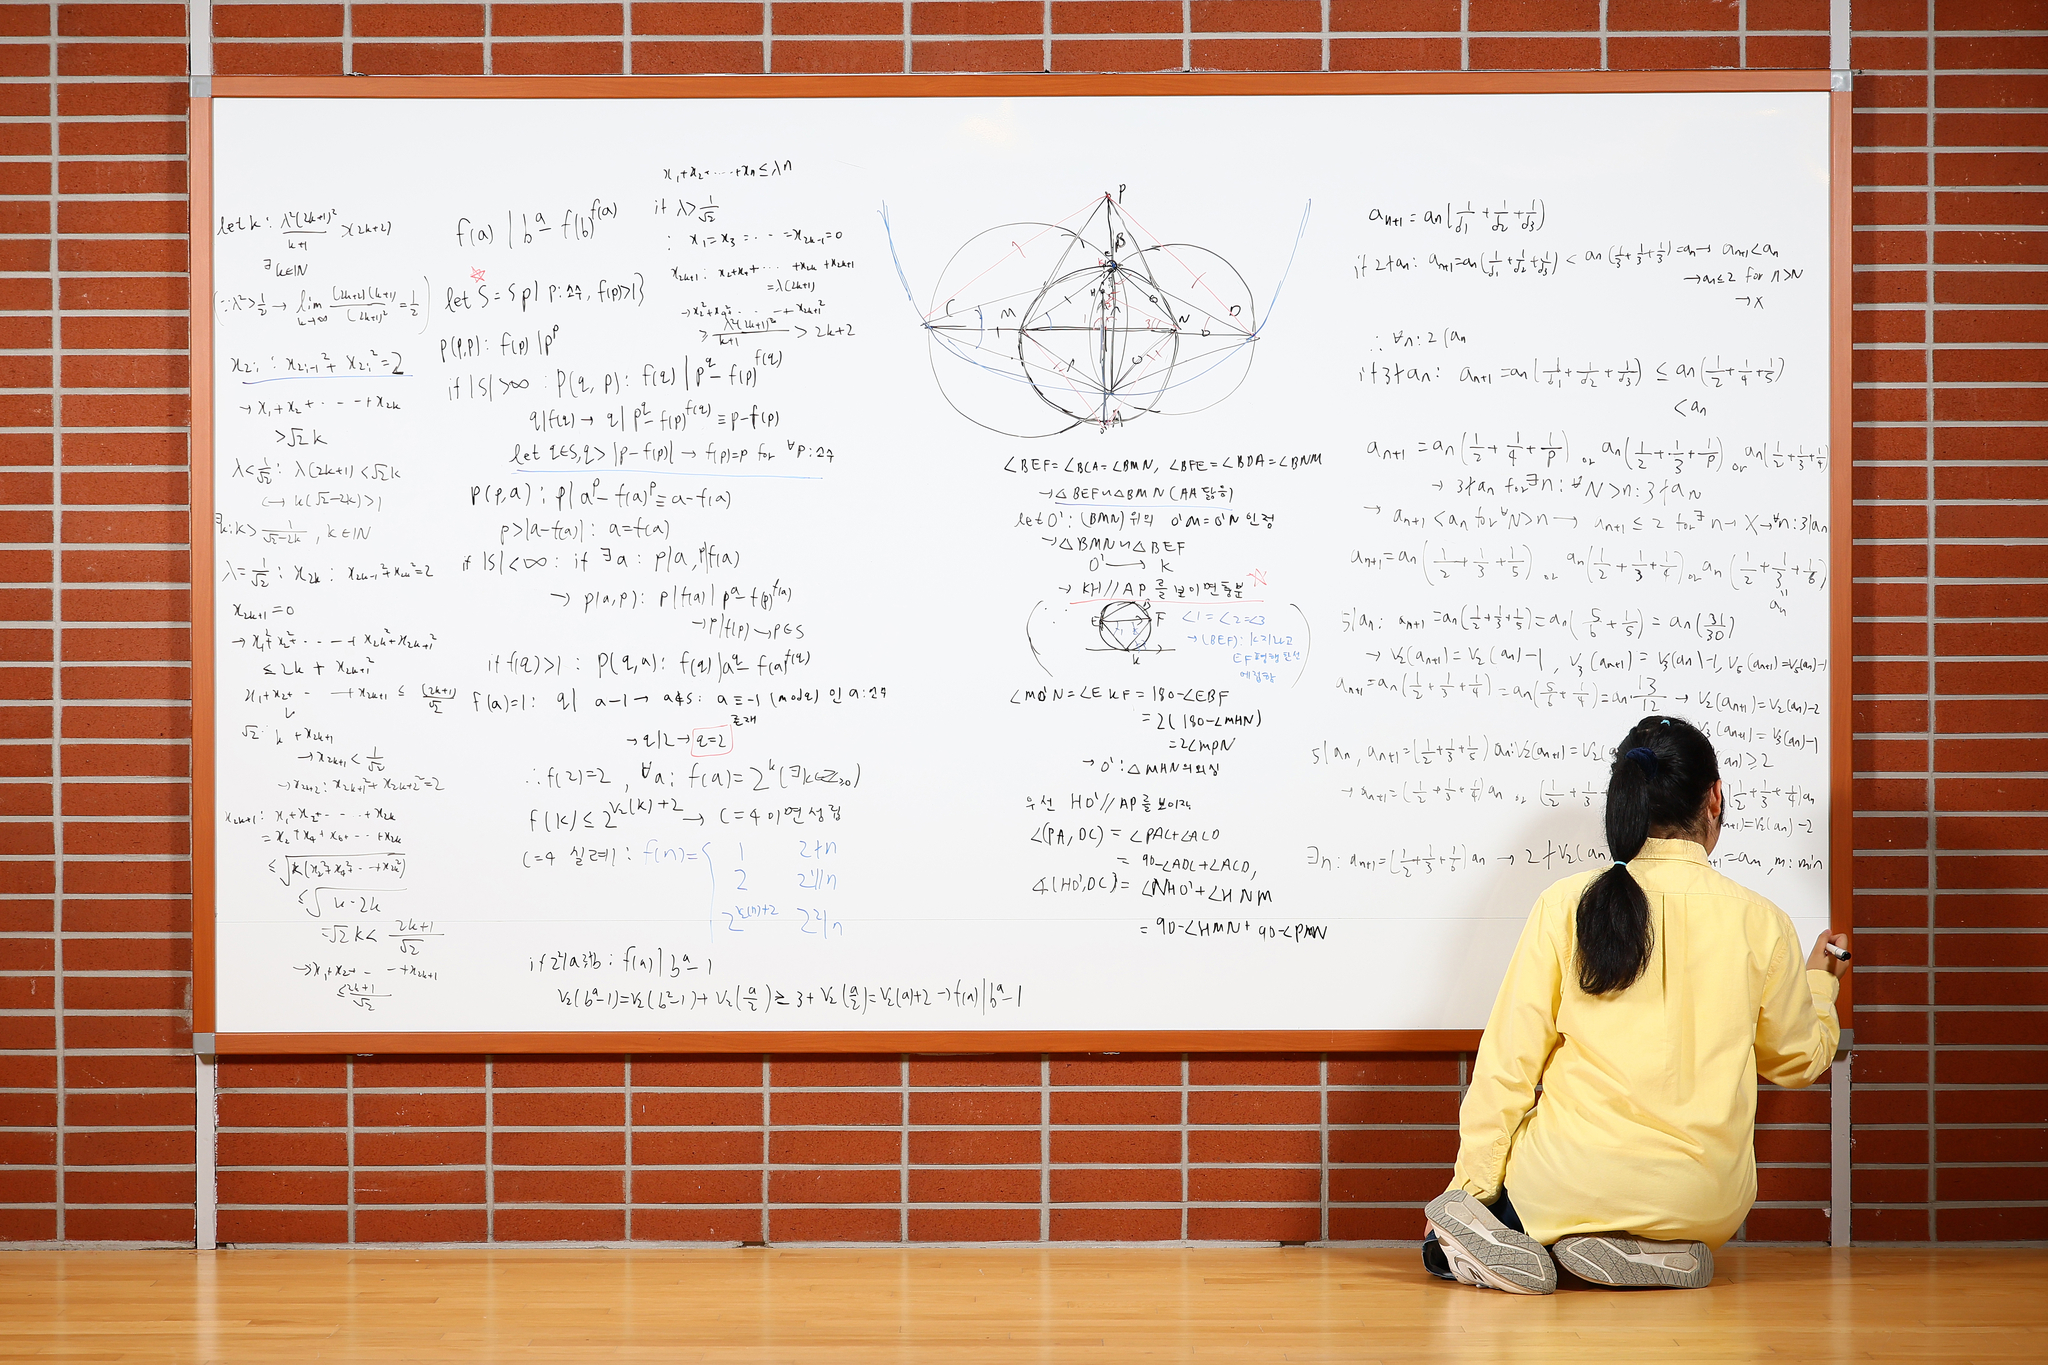 let k : λ²(2k+1)²/k+1 > (2k+2)
∃k∈ℕ
(∵ λ²>1/2 → lim k→∞ (2k+2)(k+1)/(2k+1)² = 1/2)
x₂ᵢ : x₂ᵢ₋₁² + x₂ᵢ² = 2
→ x₁+x₂+ ··· +x₂ₖ
> √2 k
λ<1/√2 : λ(2k+1) < √2 k
∃k : k > 1/(√2-2k), k∈ℕ
λ=1/√2 : x₂ₖ : x₂ₖ₋₁²+x₂ₖ²=2
x₂ₖ₊₁=0
→ x₁²+x₂²+ ··· +x₂ₖ²+x₂ₖ₊₁²
≤ 2k + x₂ₖ₊₁²
x₁+x₂+ ··· +x₂ₖ₊₁ ≤ (2k+1)/√2
√2 k + x₂ₖ₊₁
→ x₂ₖ₊₁ < 1/√2
→ x₂ₖ₊₂ : x₂ₖ₊₁²+x₂ₖ₊₂²=2
x₂ₖ₊₁ : x₁+x₂+ ··· +x₂ₖ
= x₂+x₄+x₆+ ··· +x₂ₖ
≤ √(k(x₂²+x₄²+ ··· +x₂ₖ²))
≤ √(k·2k)
= √2 k < (2k+1)/√2
→ x₁+x₂+ ··· +x₂ₖ₊₁
≤ (2k+1)/√2
x₁+x₂+ ··· +xₙ ≤ λn
if λ>1/√2
: x₁=x₃= ··· =x₂ₖ₋₁=0
x₂ₖ₊₁ : x₂+x₄+ ··· +x₂ₖ+x₂ₖ₊₁
=λ(2k+1)
→ x₂²+x₄²+ ··· +x₂ₖ₊₁²
≥ λ²(2k+1)²/k+1 > 2k+2
f(a) | bᵃ - f(b)^f(a)
let S = {p | p:소수, f(p)>1}
P(p,p) : f(p) | pᵖ
if |S|>∞ : P(q,p) : f(q) | p^q - f(p)^f(q)
q|f(q) → q | p^q - f(p)^f(q) ≡ p-f(p)
let q∈S, q > |p-f(p)| → f(p)=p for ∀p:소수
P(p,a) : p | aᵖ - f(a)ᵖ ≡ a-f(a)
p>|a-f(a)| : a=f(a)
if |S|<∞ : if ∃a : p|a, p|f(a)
→ p(a,p) : p | f(a) | pᵃ - f(p)^f(a)
→ p|f(p) → p∈S
if f(q)>1 : P(q,a) : f(q) | a^q - f(a)^f(q)
f(a)=1 : q | a-1 → a∉S : a≡-1 (mod q) 인 a:소수
존재
→ q|2 → q=2
∴ f(2)=2, ∀a : f(a)=2ᵏ (∃k∈ℤ≥0)
f(k) ≤ 2^(V₂(k)+2) → C=4 이면 성립
C=4 실례 : f(n)= { 1 2∤n
2 2¹||n
2^(V₂(n)+2) 2²|n
if 2|a, 2∤b : f(a) | bᵃ-1
V₂(bᵃ-1)=V₂(b²-1)+V₂(a/2) ≥ 3+V₂(a/2)=V₂(a)+2 → f(a)|bᵃ-1
P
B
C
M
N
D
A
∠BEF=∠BCA=∠BMN, ∠BFE=∠BDA=∠BNM
→ △BEF∽△BMN (AA 닮음)
let O' : (BMN) 위의 O'M=O'N 인 점
→ △BMN∽△BEF
O' → K
→ KH//AP 를 보이면 충분
B
E
F
K
∠1=∠2=∠3
→ (BEF) : K 지나고
EF 평행한 선
에 접함
∠MO'N=∠EKF=180-∠EBF
=2(180-∠MHN)
=2∠MPN
→ O' : △MHN의 외심
우선 HO'//AP를 보이자
∠(PA, DC) = ∠PAC+∠ACD
= 90-∠ADC+∠ACD,
∠(HO', DC) = ∠NHO'+∠HNM
= 90-∠HMN+90-∠PMN
aₙ₊₁ = aₙ(1/d₁+1/d₂+1/d₃)
if 2∤aₙ : aₙ₊₁=aₙ(1/d₁+1/d₂+1/d₃) < aₙ(1/3+1/3+1/3)=aₙ → aₙ₊₁<aₙ
→ aₙ≤2 for n>N
→ X
∴ ∀n : 2|aₙ
if 3∤aₙ : aₙ₊₁=aₙ(1/d₁+1/d₂+1/d₃) ≤ aₙ(1/2+1/4+1/5)
< aₙ
aₙ₊₁ = aₙ(1/2+1/4+1/p) or aₙ(1/2+1/3+1/p) or aₙ(1/2+1/3+1/4)
→ 3∤aₙ for ∃n : ∀N>n : 3∤a_N
→ aₙ₊₁<aₙ for ∀N>n → aₙ₊₁≤2 for ∃n → X → ∀n : 3|aₙ
aₙ₊₁=aₙ(1/2+1/3+1/5) or aₙ(1/2+1/3+1/4) or aₙ(1/2+1/3+1/6)
aₙ
5|aₙ : aₙ₊₁=aₙ(1/2+1/3+1/5)=aₙ(5/6+1/5)=aₙ(31/30)
→ V₂(aₙ₊₁)=V₂(aₙ)-1, V₃(aₙ₊₁)=V₃(aₙ)-1, V₅(aₙ₊₁)=V₅(aₙ)-1
aₙ₊₁=aₙ(1/2+1/3+1/4)=aₙ(5/6+1/4)=aₙ·13/12 → V₂(aₙ₊₁)=V₂(aₙ)-2
V₃(aₙ₊₁)=V₃(aₙ)-1
5|aₙ, aₙ₊₁=(1/2+1/3+1/5)aₙ : V₂(aₙ₊₁)=V₂(a
≥2
→ aₙ₊₁=(1/2+1/3+1/4)aₙ or (1/2+1/3+
1/2+1/3+1/4)aₙ
=V₂(aₙ)-2
∃n : aₙ₊₁=(1/2+1/3+1/6)aₙ → 2∤V₂(aₙ
=aₘ, m : min